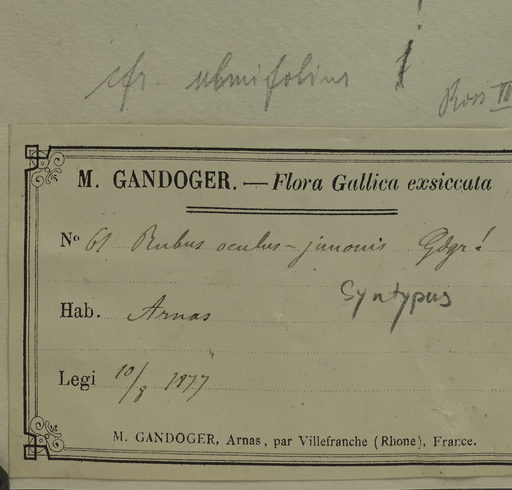 cfr. ulmifolius !
M. GANDOGER. — Flora Gallica exsiccata
Nº 61 Rubus oculus-junonis Gdgr!
Syntypus
Hab. Arnas
Legi 10/8 1877
M. GANDOGER, Arnas, par Villefranche (Rhone), France.